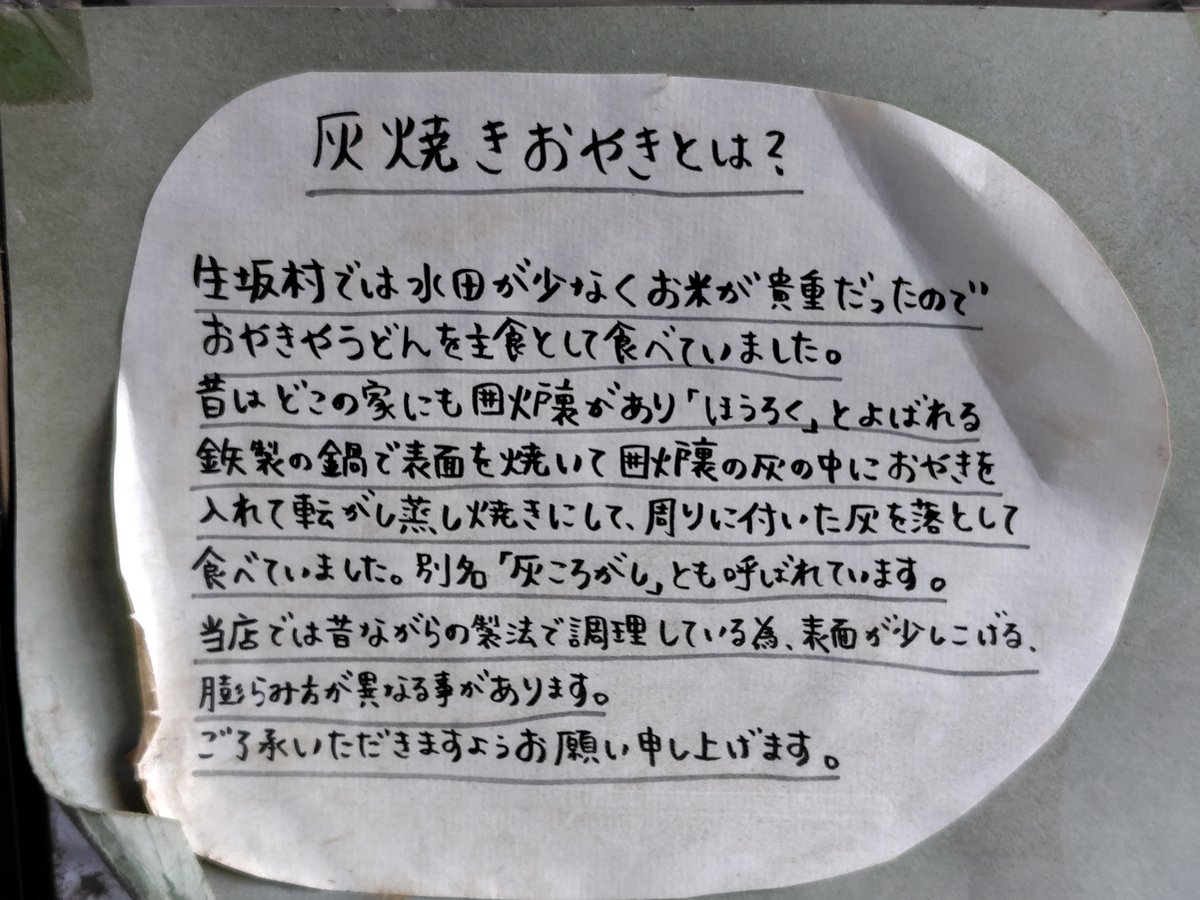 灰焼きおやきとは?
生坂村では水田が少なくお米が貴重だったので
おやきやうどんを主食として食べていました。
昔はどこの家にも囲炉裏があり「ほうろく」とよばれる
鉄製の鍋で表面を焼いて囲炉裏の灰の中におやきを
入れて転がし蒸し焼きにして、周りに付いた灰を落として
食べていました。別名「灰ころがし」とも呼ばれています。
当店では昔ながらの製法で調理している為、表面が少しこげる、
膨らみ方が異なる事があります。
ご了承いただきますようお願い申し上げます。